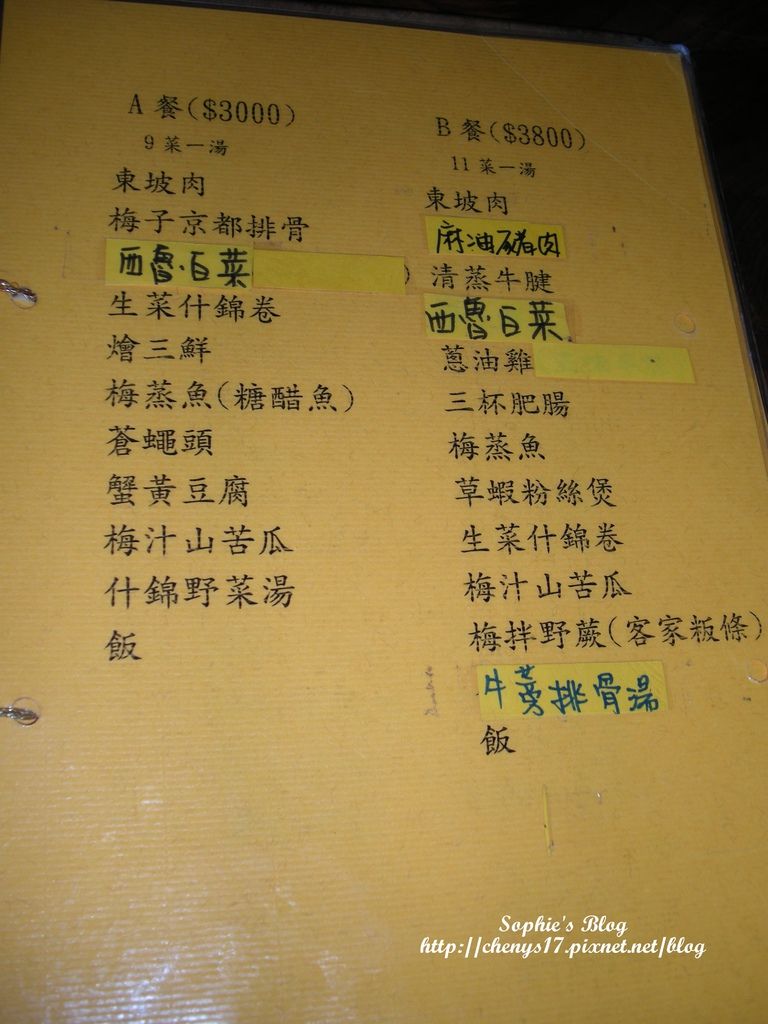 A 餐($3000)
9 菜一湯
東坡肉
梅子京都排骨
西魯白菜
生菜什錦卷
燴三鮮
梅蒸魚(糖醋魚)
蒼蠅頭
蟹黃豆腐
梅汁山苦瓜
什錦野菜湯
飯
B 餐($3800)
11 菜一湯
東坡肉
麻油豬肉
清蒸牛腱
西魯白菜
蔥油雞
三杯肥腸
梅蒸魚
草蝦粉絲煲
生菜什錦卷
梅汁山苦瓜
梅拌野蕨(客家粄條)
牛蒡排骨湯
飯
Sophie's Blog
http://chenys17.pixnet.net/blog